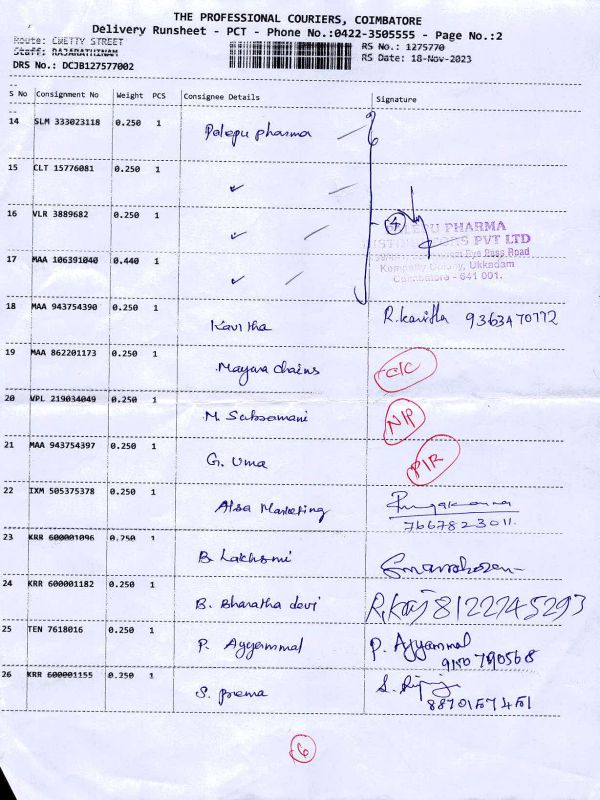 THE PROFESSIONAL COURIERS, COIMBATORE
Delivery Runsheet - PCT - Phone No.:0422-3505555 - Page No.:2
Route: CHETTY STREET
RS No.: 1275770
Staff: RAJARATHINAM
RS Date: 18-Nov-2023
DRS No.: DCJB127577002
S No Consignment No Weight PCS Consignee Details Signature
14 SLM 333023118 0.250 1 Palepu pharma
15 CLT 15776081 0.250 1 ✓
16 VLR 3889682 0.250 1 ✓
17 MAA 106391040 0.440 1 ✓
4
PHARMA
PVT LTD
Bye Pass Road
Ukkadam
Coimbatore - 641 001.
18 MAA 943754390 0.250 1 Kavitha R. Kavitha 9363470772
19 MAA 862201173 0.250 1 Mayura chains C/C
20 VPL 219034049 0.250 1 M. Subramani N/P
21 MAA 943754397 0.250 1 G. Uma P/R
22 IXM 505375378 0.250 1 Alsa Marketing
7667823011.
23 KRR 600001096 0.250 1 B. Lakhsmi
24 KRR 600001182 0.250 1 B. Bharatha devi R. Raj 8122745293
25 TEN 7618016 0.250 1 P. Ayyammal P. Ayyammal
9150790568
26 KRR 600001155 0.250 1 S. prema
8870157451
6